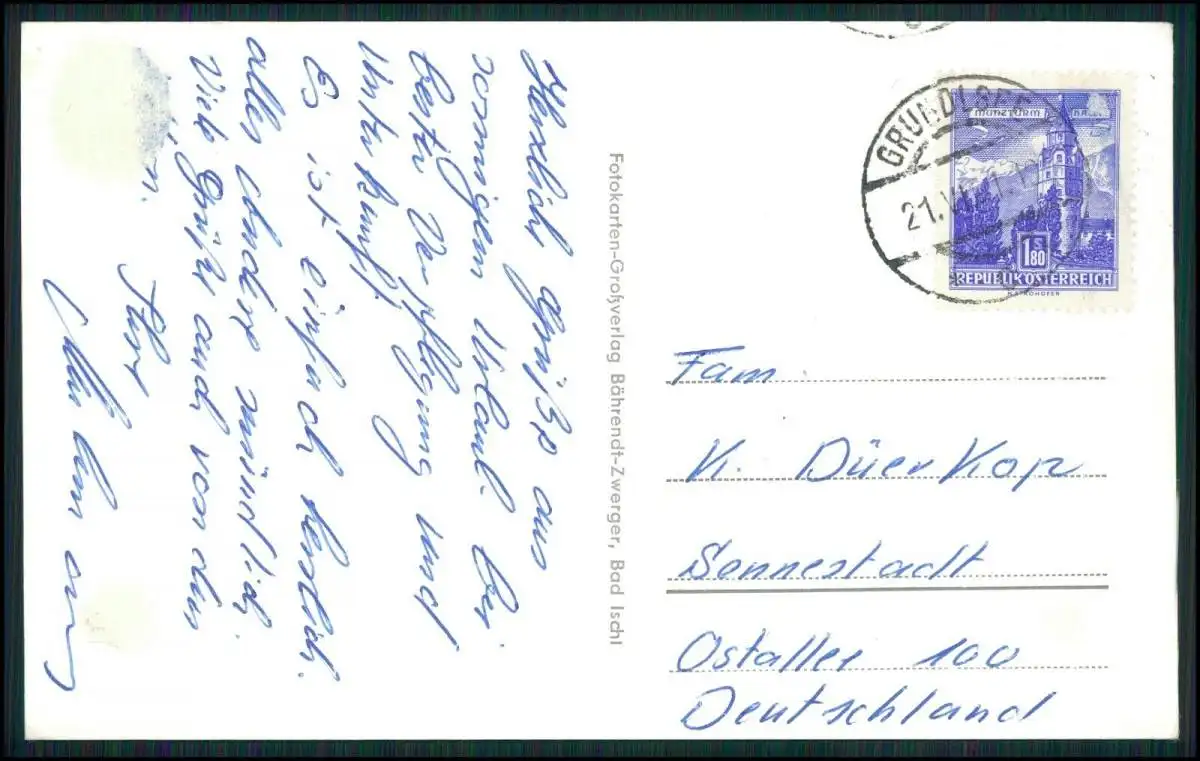 Herzliche Grüße aus
sonnigem Urlaub bei
bester Verpflegung und
Unterkunft.
Es ist einfach herrlich.
alles andere mündlich.
Viele Grüße auch von den
Ihre
Fotokarten-Großverlag Bährendt-Zwerger, Bad Ischl
GRUNDLSEE
21.VI
MÜNZTURM
1.80
REPUBLIK ÖSTERREICH
Fam.
K. Düerkop
Sennestadt
Ostallee 100
Deutschland